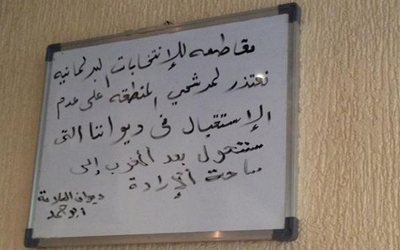 مقاطعه للإنتخابات البرلمانيه
نعتذر لمرشحي المنطقه على عدم
الإستقبال في ديواننا التى
ستتحول بعد المغرب إلى
ساحة الإرادة
ديوان العلامة
ابو حمد